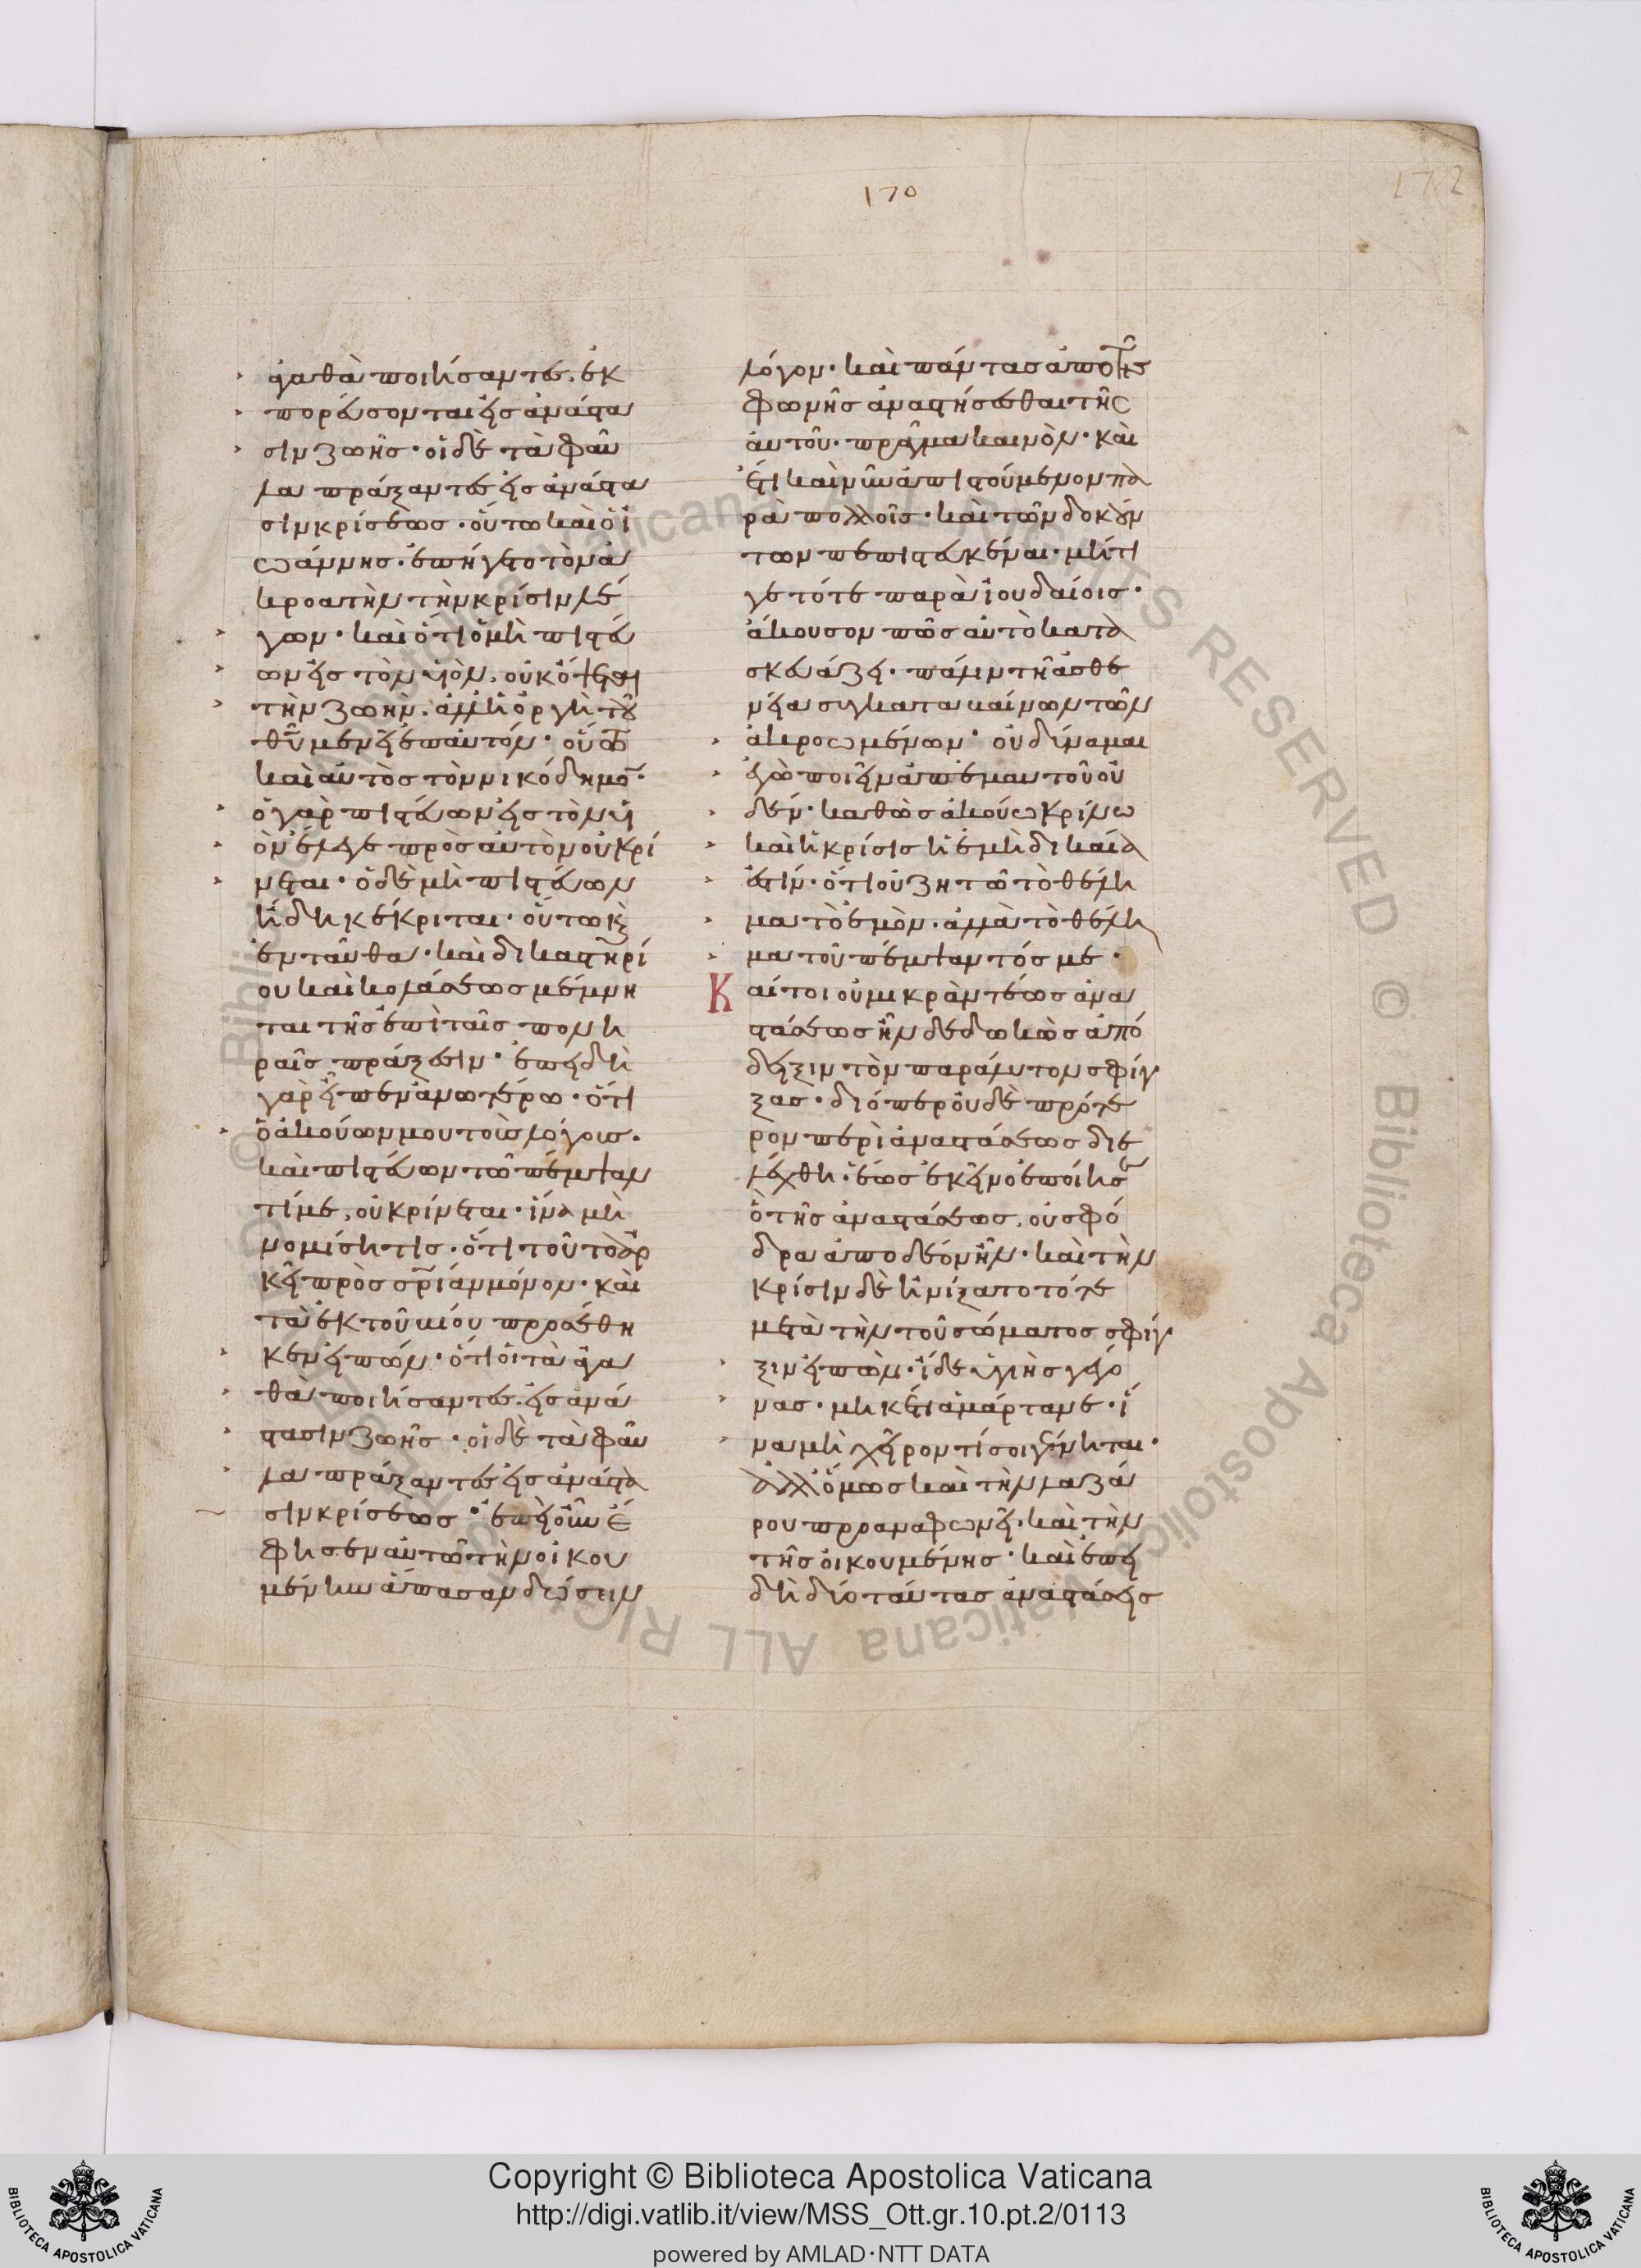 170
172
γαθὰ ποιήσαντες. ἐκ
πορεύσονται εἰς ἀνάστα
σιν ζωῆς· οἱ δὲ τὰ φαῦ
λα πράξαντες εἰς ἀνάστα
σιν κρίσεως. οὕτω καὶ ὁ ἰ
ωάννης. ἐπήγετο τὸν ἀ
κροατὴν τὴν κρίσιν λέ
γων· καὶ ὅτι ὁ μὴ πιστεύ
ων εἰς τὸν υἱὸν, οὐκ ὄψεται
τὴν ζωήν. ἀλλ' ἡ ὀργὴ τοῦ
θυ μενεῖ ἐπ' αὐτόν· οὕτω
καὶ αὐτὸς τὸν νικόδημον·
ὁ γὰρ πιστεύων εἰς τὸν υἱ
ὸν ἔλεγε πρὸς αὐτὸν οὐ κρί
νεται· ὁ δὲ μὴ πιστεύων
ἤδη κέκριται· οὕτω καὶ
ἐνταῦθα· καὶ δικαστηρί
ου καὶ κολάσεως μέμνη
ται τῆς ἐπὶ ταῖς πονη
ραῖς πράξεσιν· ἐπειδὴ
γὰρ εἶπεν ἀνωτέρω· ὅτι
ὁ ἀκούων μου τοὺς λόγους.
καὶ πιστεύων τῶ πέμψαν
τί με, οὐ κρίνεται· ἵνα μὴ
νομίση τις· ὅτι τοῦτο ἀρ
κεῖ πρὸς σρίαν μόνον· καὶ
τὰ ἐκ τοῦ βίου προσέθη
κεν εἰπών· ὅτι οἱ τὰ ἀγα
θὰ ποιήσαντες. εἰς ἀνά
στασιν ζωῆς· οἱ δὲ τὰ φαῦ
λα πράξαντες εἰς ἀνάστα
σιν κρίσεως· ἐπεὶ οὖν ἔ
φησεν αὐτῶ τὴν οἰκου
μένην ἅπασαν δώσειν
λόγον· καὶ πάντας ἀπὸ τῆς
φωνῆς ἀναστήσεσθαι τῆς
αὐτοῦ· πρᾶγμα καινὸν· καὶ
ἔτι καὶ νῦν ἀπιστούμενον πα
ρὰ πολλοῖς· καὶ τῶν δοκούν
των πεπιστευκέναι· μήτι
γε τότε παρὰ ἰουδαίοις·
ἄκουσον πῶς αὐτὸ κατα
σκευάζει· πάλιν τῆ ἀσθε
νεία συγκαταβαίνων τῶν
ἀκροωμένων· οὐ δύναμαι
ἐγὼ ποιεῖν ἀπ' ἐμαυτοῦ οὐ
δέν· καθὼς ἀκούω κρίνω
καὶ ἡ κρίσις ἡ ἐμὴ δικαία
ἐστίν· ὅτι οὐ ζητῶ τὸ θέλη
μα τὸ ἐμὸν. ἀλλὰ τὸ θέλη
μα τοῦ πέμψαντός με·
Καίτοι οὐ μικρὰν τέως ἀνα
στάσεως ἦν δεδωκὼς ἀπό
δειξιν τὸν παράλυτον σφίγ
ξας· διόπερ οὐδὲ πρότε
ρον περὶ ἀναστάσεως διε
λέχθη· ἕως ἐκεῖνο ἐποίησεν
ὃ τῆς ἀναστάσεως. οὐ σφό
δρα ἀποδέον ἦν· καὶ τὴν
κρίσιν δὲ ἠνίξατο τότε
μετὰ τὴν τοῦ σώματος σφίγ
ξιν εἰπὼν· ἴδε ὑγιὴς γέγο
νας· μηκέτι ἁμάρτανε· ἵ
να μὴ χεῖρόν τί σοι γένηται·
ἀλλ' ὅμως καὶ τὴν λαζά
ρου προαναφωνεῖ· καὶ τὴν
τῆς οἰκουμένης· καὶ ἐπει
δὴ δύο ταύτας ἀναστάσεις
Copyright © Biblioteca Apostolica Vaticana
http://digi.vatlib.it/view/MSS_Ott.gr.10.pt.2/0113
powered by AMLAD·NTT DATA
BIBLIOTECA APOSTOLICA VATICANA
BIBLIOTECA APOSTOLICA VATICANA